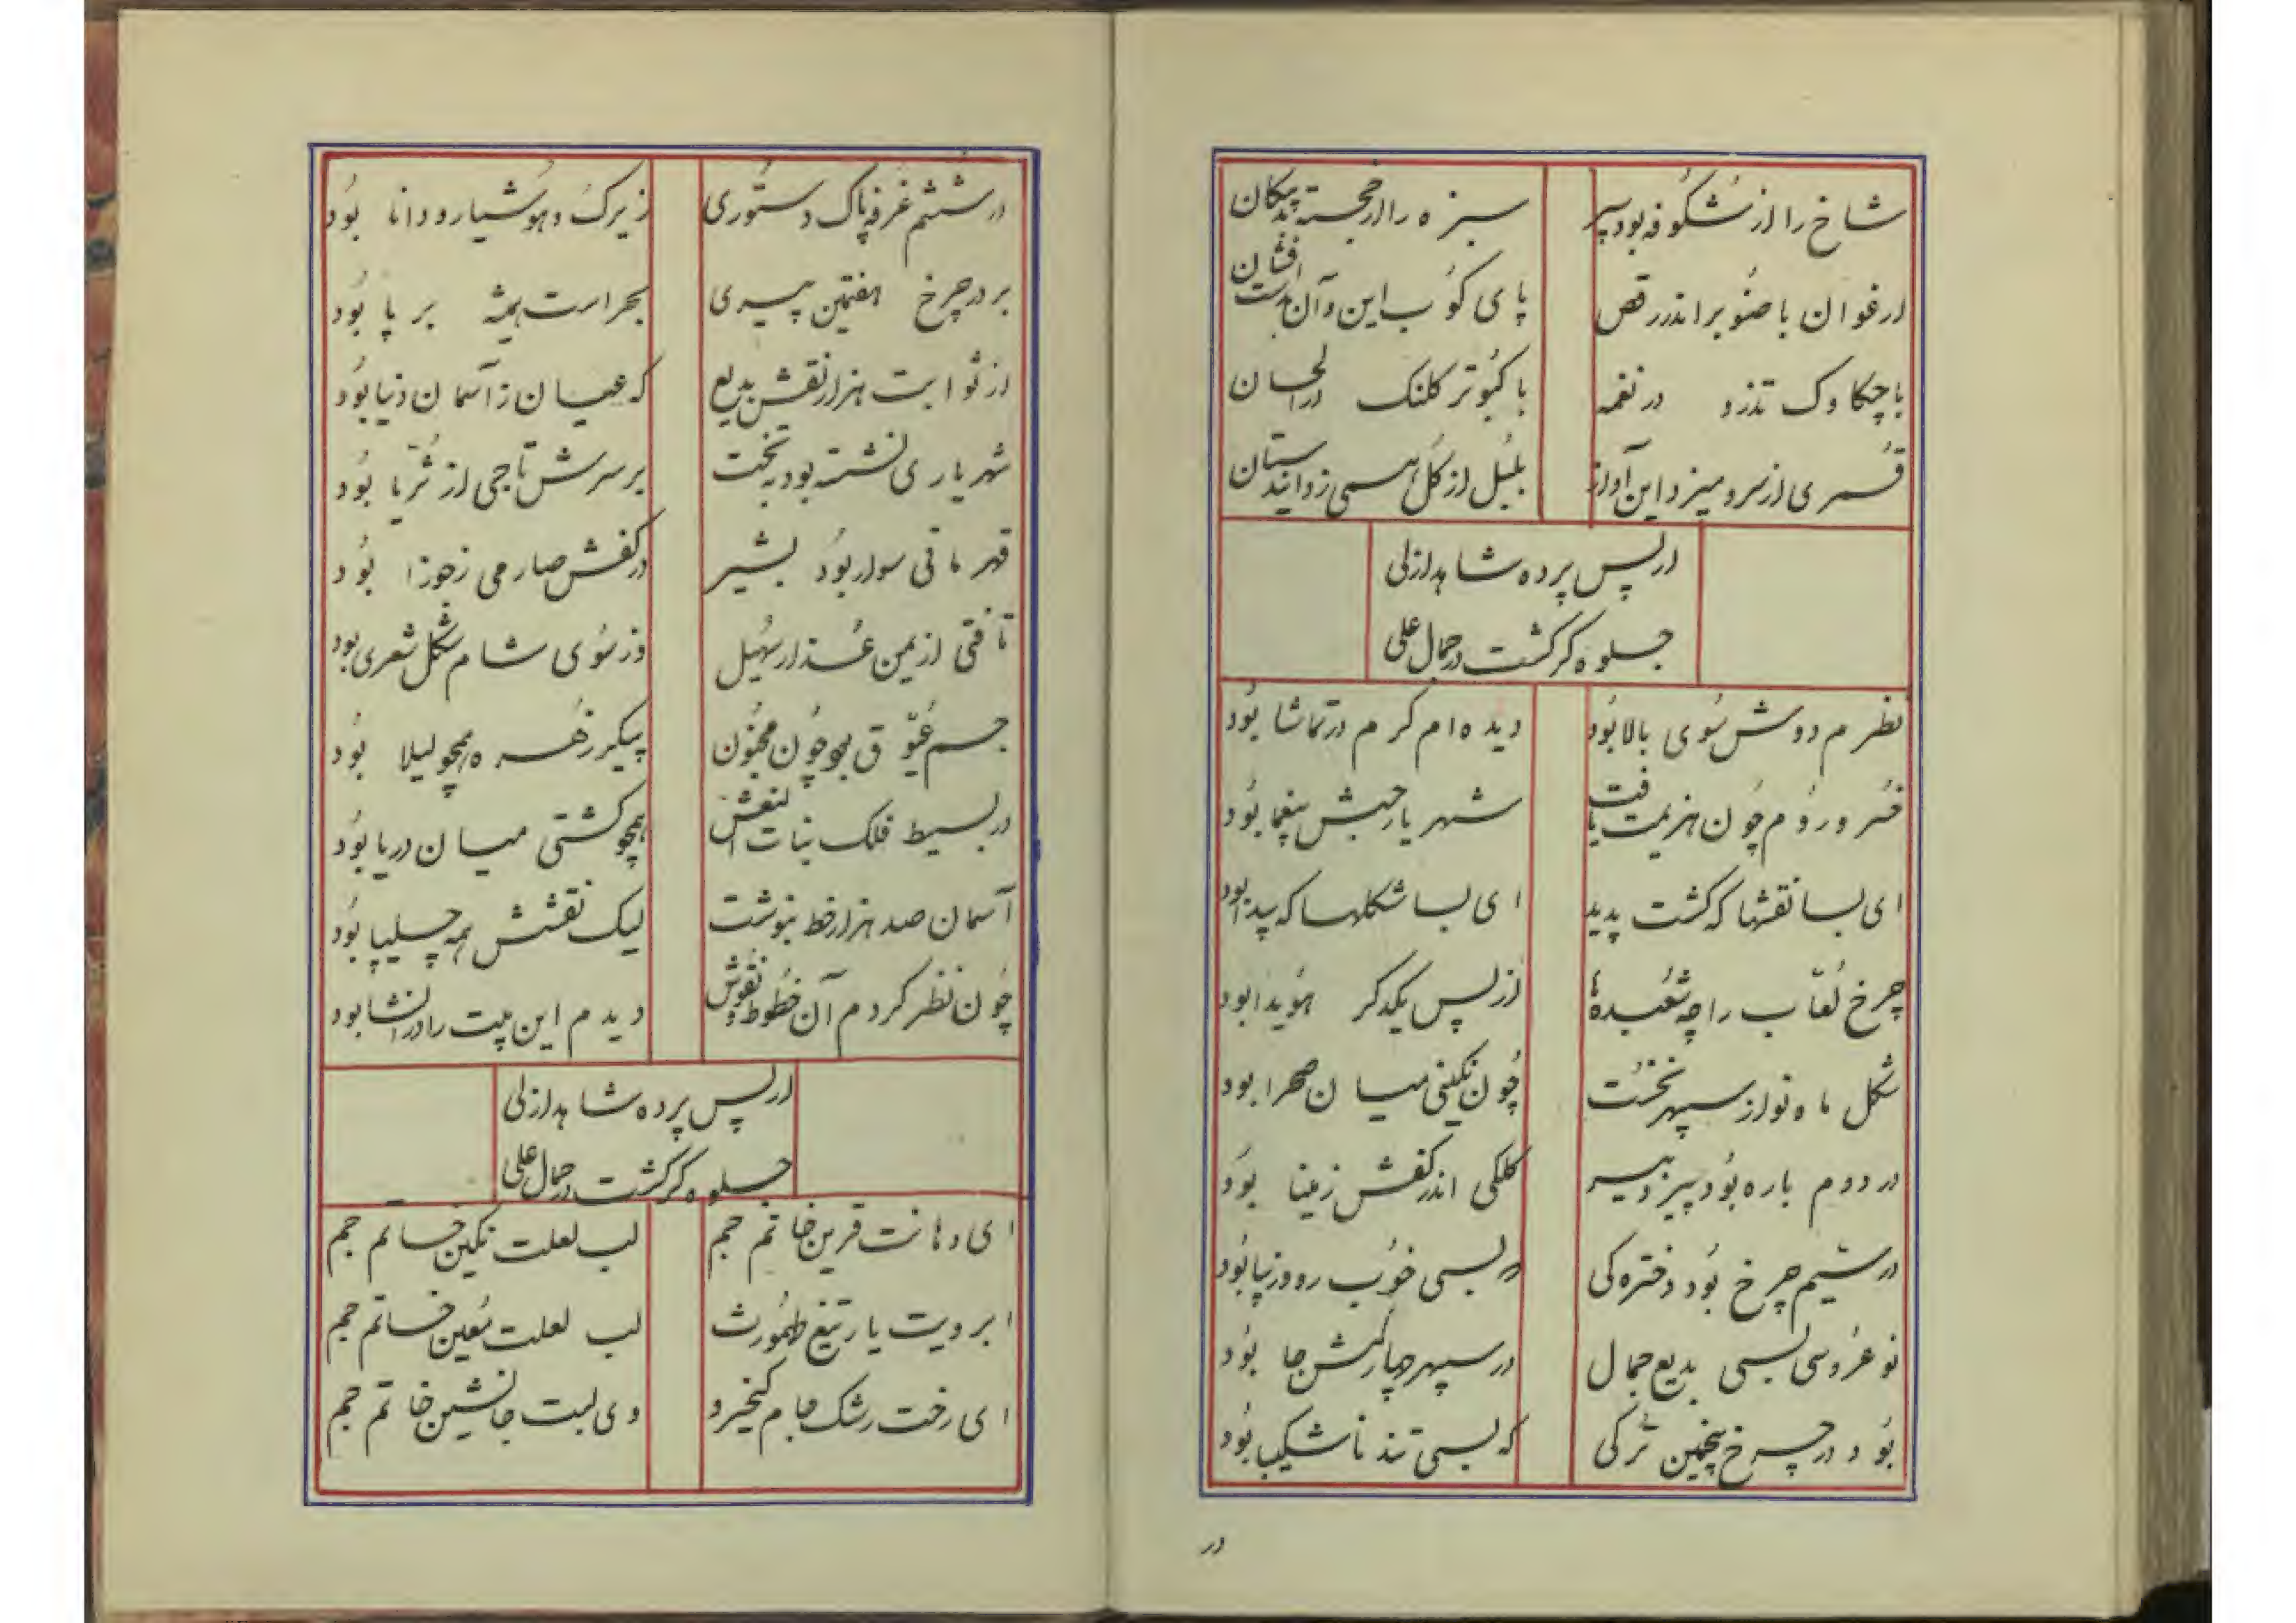 شاخ را از شکوفه بود سپر
سبزه را از خجسته بد پیکان
ارغوان با صنوبر اندر رقص
پای کوب این و آن دست افشان
با چکاوک تذرو در نغمه
با کبوتر کلنک در الحان
قمری از سرو میزد این آواز
بلبل از گل همی زد این دستان
از پس پرده شاهد ازلی
جلوه گر گشت در جمال علی
نظرم دوش سوی بالا بود
دیده‌ام گرم در تماشا بود
خسرو روم چون هزیمت یافت
شهریار حبش بیغما بود
ای بسا نقشها که گشت پدید
ای بسا شکلها که پیدا بود
چرخ لعاب را چه شعبدها
از پس یکدگر هویدا بود
شکل ماه نو از سپهر نخست
چون نگینی میان صحرا بود
در دوم باره بود پیر دبیر
کلکی اندر کفش ز مینا بود
در سیم چرخ بود دختره کی
که بسی خوب رو و زیبا بود
نو عروسی بسی بدیع جمال
در سپهر چهارمش جا بود
بود در چرخ پنجمین ترکی
که بسی تند ناشکیبا بود
در
در ششم غرفه پاک دستوری
زیرک و هوشیار و دانا بود
بر در چرخ هفتمین پیری
بحراست همیشه بر پا بود
از ثوابت هزار نقش بدیع
که عیان ز آسمان دنیا بود
شهریاری نشسته بود به تخت
بر سرش تاجی از ثریا بود
قهرمانی سوار بود بشیر
در کفش صارمی ز جوزا بود
تافتی از یمن عذار سهیل
وز سوی شام شکل شعری بود
جسم عیوق بد چون مجنون
پیکر زهره همچو لیلا بود
در بسیط فلک بنات النعش
همچو کشتی میان دریا بود
آسمان صد هزار خط بنوشت
لیک نقشش همه چلیپا بود
چون نظر کردم آن خطوط و نقوش
دیدم این بیت را در انشا بود
از پس پرده شاهد ازلی
جلوه گر گشت در جمال علی
ای دهانت قرین خاتم جم
لب لعلت نگین خاتم جم
ابرویت یا رتیغ طهمورث
لب لعلت معین خاتم جم
ای رخت رشک جام کیخسرو
وی لبت جانشین خاتم جم